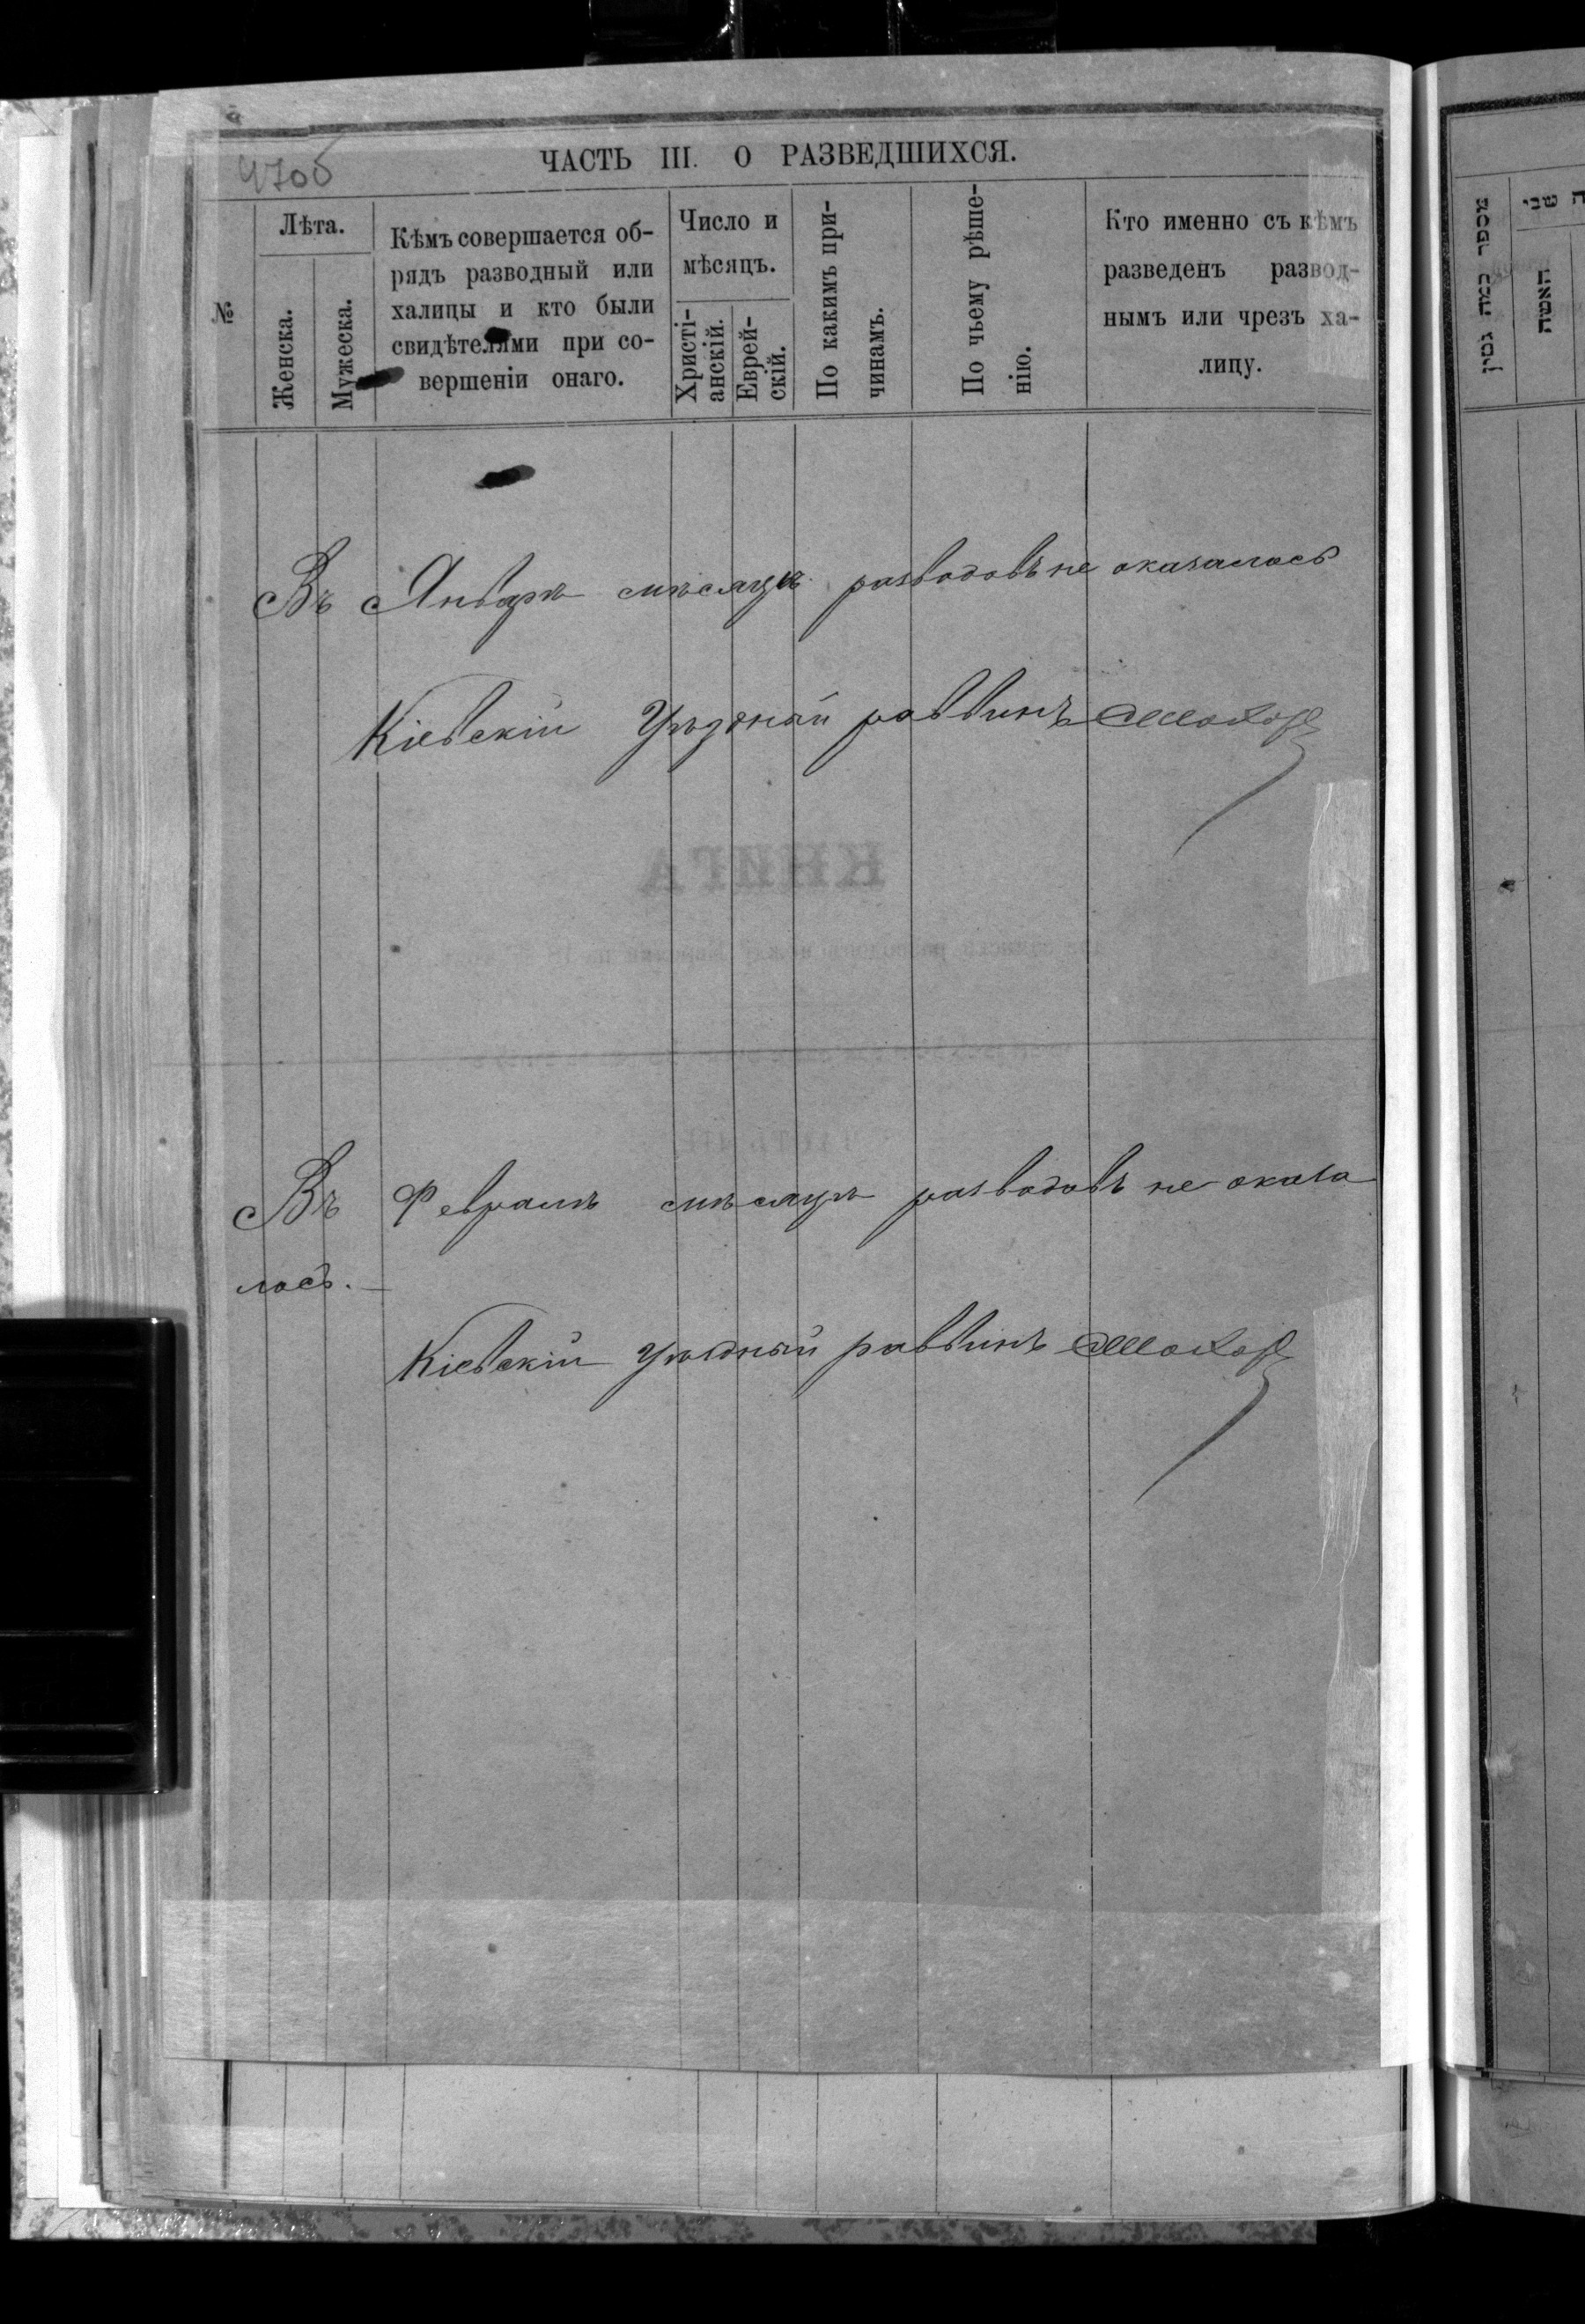 470б
ЧАСТЬ III. О РАЗВЕДШИХСЯ.
№
Лѣта.
Женска.
Мужеска.
Кѣмъ совершается об-
рядъ разводный или
халицы и кто были
свидѣтелями при со-
вершеніи онаго.
Число и
мѣсяцъ.
Христі-
анскій.
Еврей-
скій.
По какимъ при-
чинамъ.
По чьему рѣше-
нію.
Кто именно съ кѣмъ
разведенъ развод-
нымъ или чрезъ ха-
лицу.
Въ Январѣ мѣсяцѣ разводовъ не оказалось
Кіевскій Уѣздный раввинъ
КНИГА
Въ Февралѣ мѣсяцѣ разводовъ не оказа
лось.
Кіевскій Уѣздный раввинъ
מספר כמה גטין
האשה